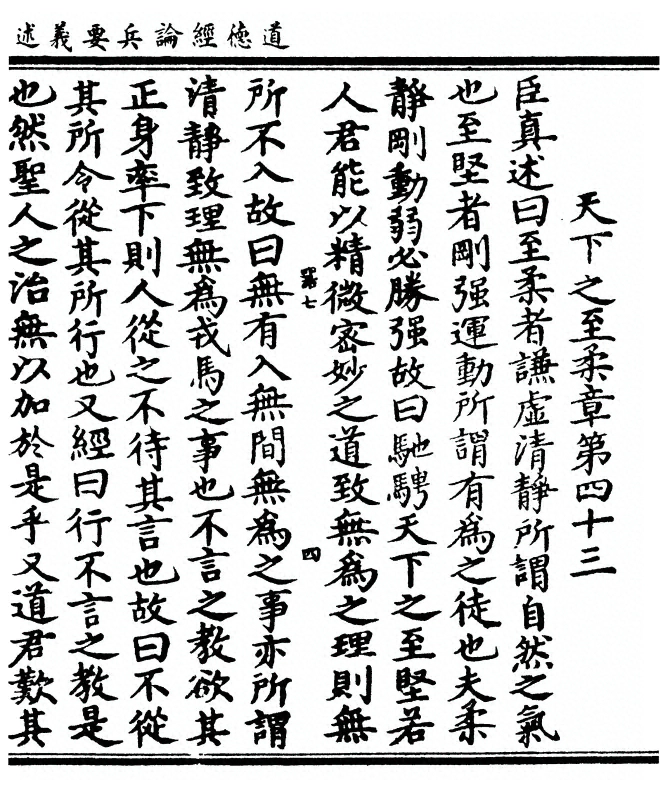 道德經論兵要義述
天下之至柔章第四十三
臣真述曰至柔者謙虛清靜所謂自然之氣
也至堅者剛强運動所謂有為之徒也夫柔
靜剛動弱必勝强故曰馳騁天下之至堅若
人君能以精微密妙之道致無為之理則無
羔七 四
所不入故曰無有入無間無為之事亦所謂
清靜致理無為戎馬之事也不言之教欲其
正身率下則人從之不待其言也故曰不從
其所令從其所行也又經曰行不言之教是
也然聖人之治無以加於是乎又道君歎其